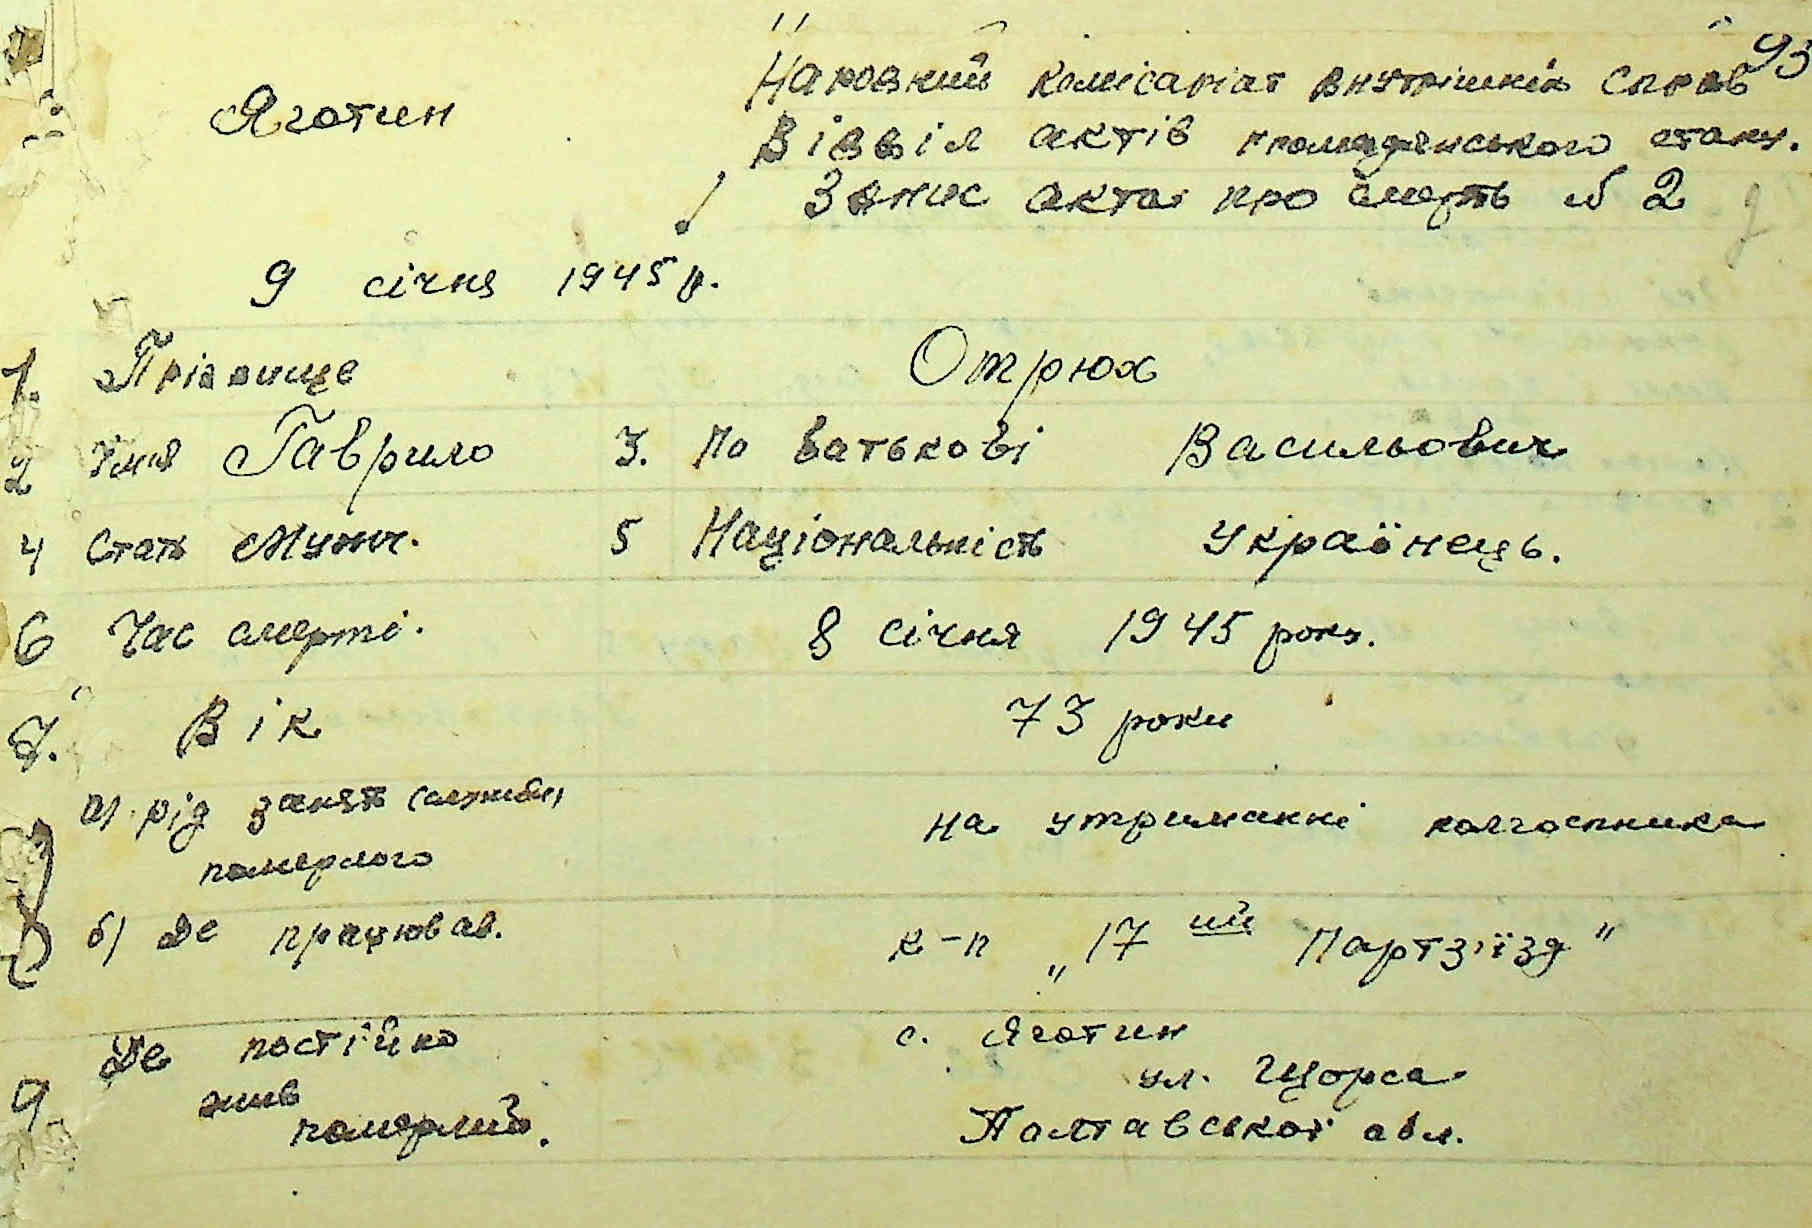 93
Яготин
Народний комісаріат внутрішніх справ
Відділ актів громадянського стану.
Запис акта про смерть № 2
9 січня 1945 р.
1. Прізвище Отрюх
2 Імя Гаврило 3. По батькові Васильович
4 Стать Мужч. 5 Національність Українець.
6 Час смерті. 8 січня 1945 року.
7. Вік 73 роки
8 а) рід занять (служби) на утриманні колгоспника
померлого
б) де працював. к-п „17 ий Партзїізд"
9 Де постійно с. Яготин
жив ул. Щорса
померлий. Полтавської обл.